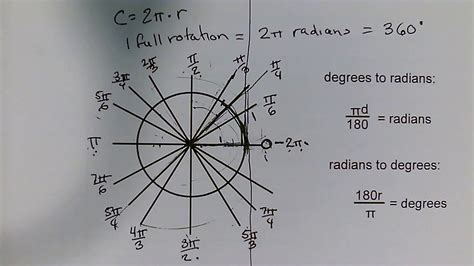 C = 2π · r
1 full rotation = 2π radians = 360°
2π/3
π/2
π/3
3π/4
π/4
5π/6
π/6
π
0 – 2π
7π/6
5π/4
7π/4
4π/3
3π/2
5π/3
degrees to radians:
πd/180 = radians
radians to degrees:
180r/π = degrees